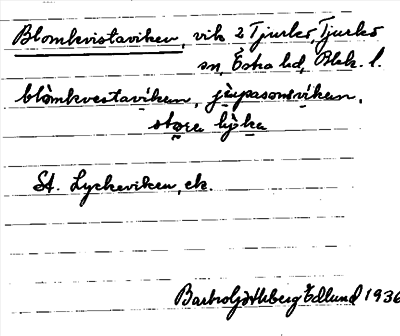 Blomkvistaviken, vik 2 Tjurkö, Tjurkö
sn, Östra hd, Blek. l.
blòmkvestavíken, jèpasonsvíken,
stora lyska
St. Lyckeviken, ek.
Edlund 1936